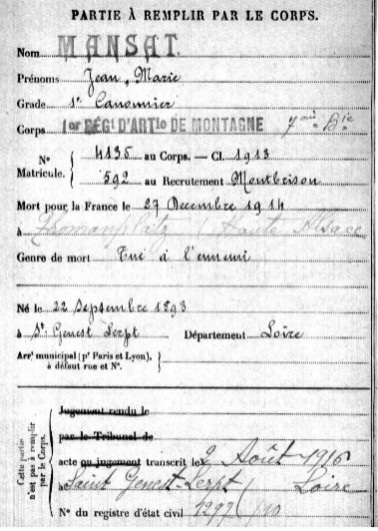 PARTIE À REMPLIR PAR LE CORPS.
Nom MANSAT
Prénoms Jean, Marie
Grade 1r Canonnier
Corps 1er RÉGt D'ARTie DE MONTAGNE Bie
No Matricule. 4135 au Corps. — Cl. 1913
592 au Recrutement Montbrison
Mort pour la France le 27 Décembre 1914
à Thomanplatz (Haute Alsace
Genre de mort Tué à l'ennemi
Né le 22 Septembre 1893
à St Genest Lerpt Département Loire
Arrt municipal (pr Paris et Lyon), à défaut rue et No.
Cette partie n'est pas à remplir par le Corps.
Jugement rendu le
par le Tribunal de
acte ou jugement transcrit le 2 Août 1916
à Saint Genest-Lerpt (Loire
No du registre d'état civil 1297/